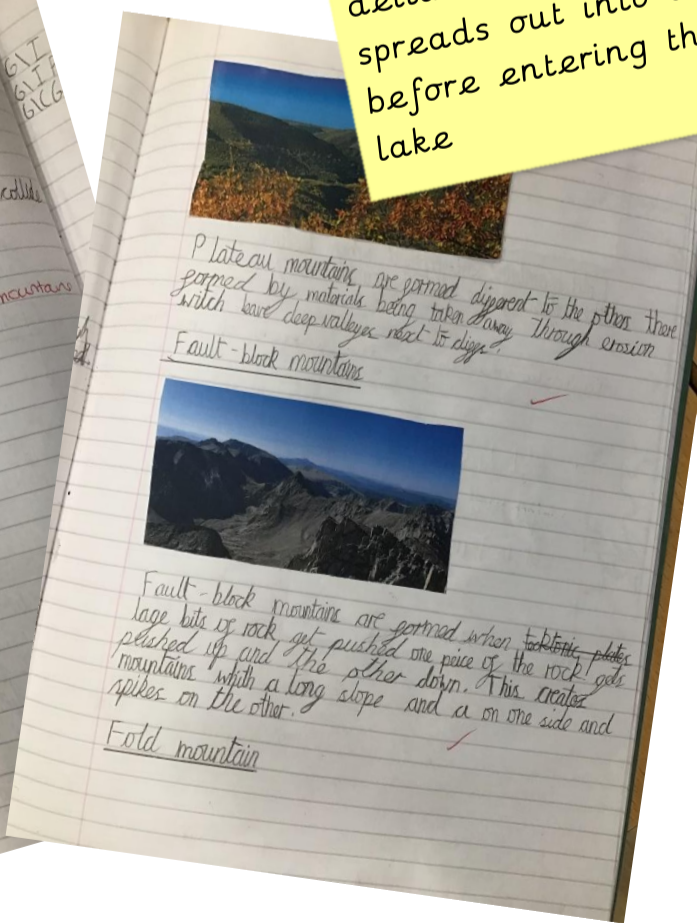 spreads out into
before entering th
lake
G\I
G\CG
collide
mountains
Plateau mountains are formed different to the others there
formed by materials being taken away through erosion
witch have deep valleyes next to
Fault-block mountains
Fault-block mountains are formed when tecktonic plates
lage bits of rock get pushed one peice of the rock gets
pushed up and the other down. This creates
mountains whith a long slope and a on one side and
spikes on the other.
Fold mountain